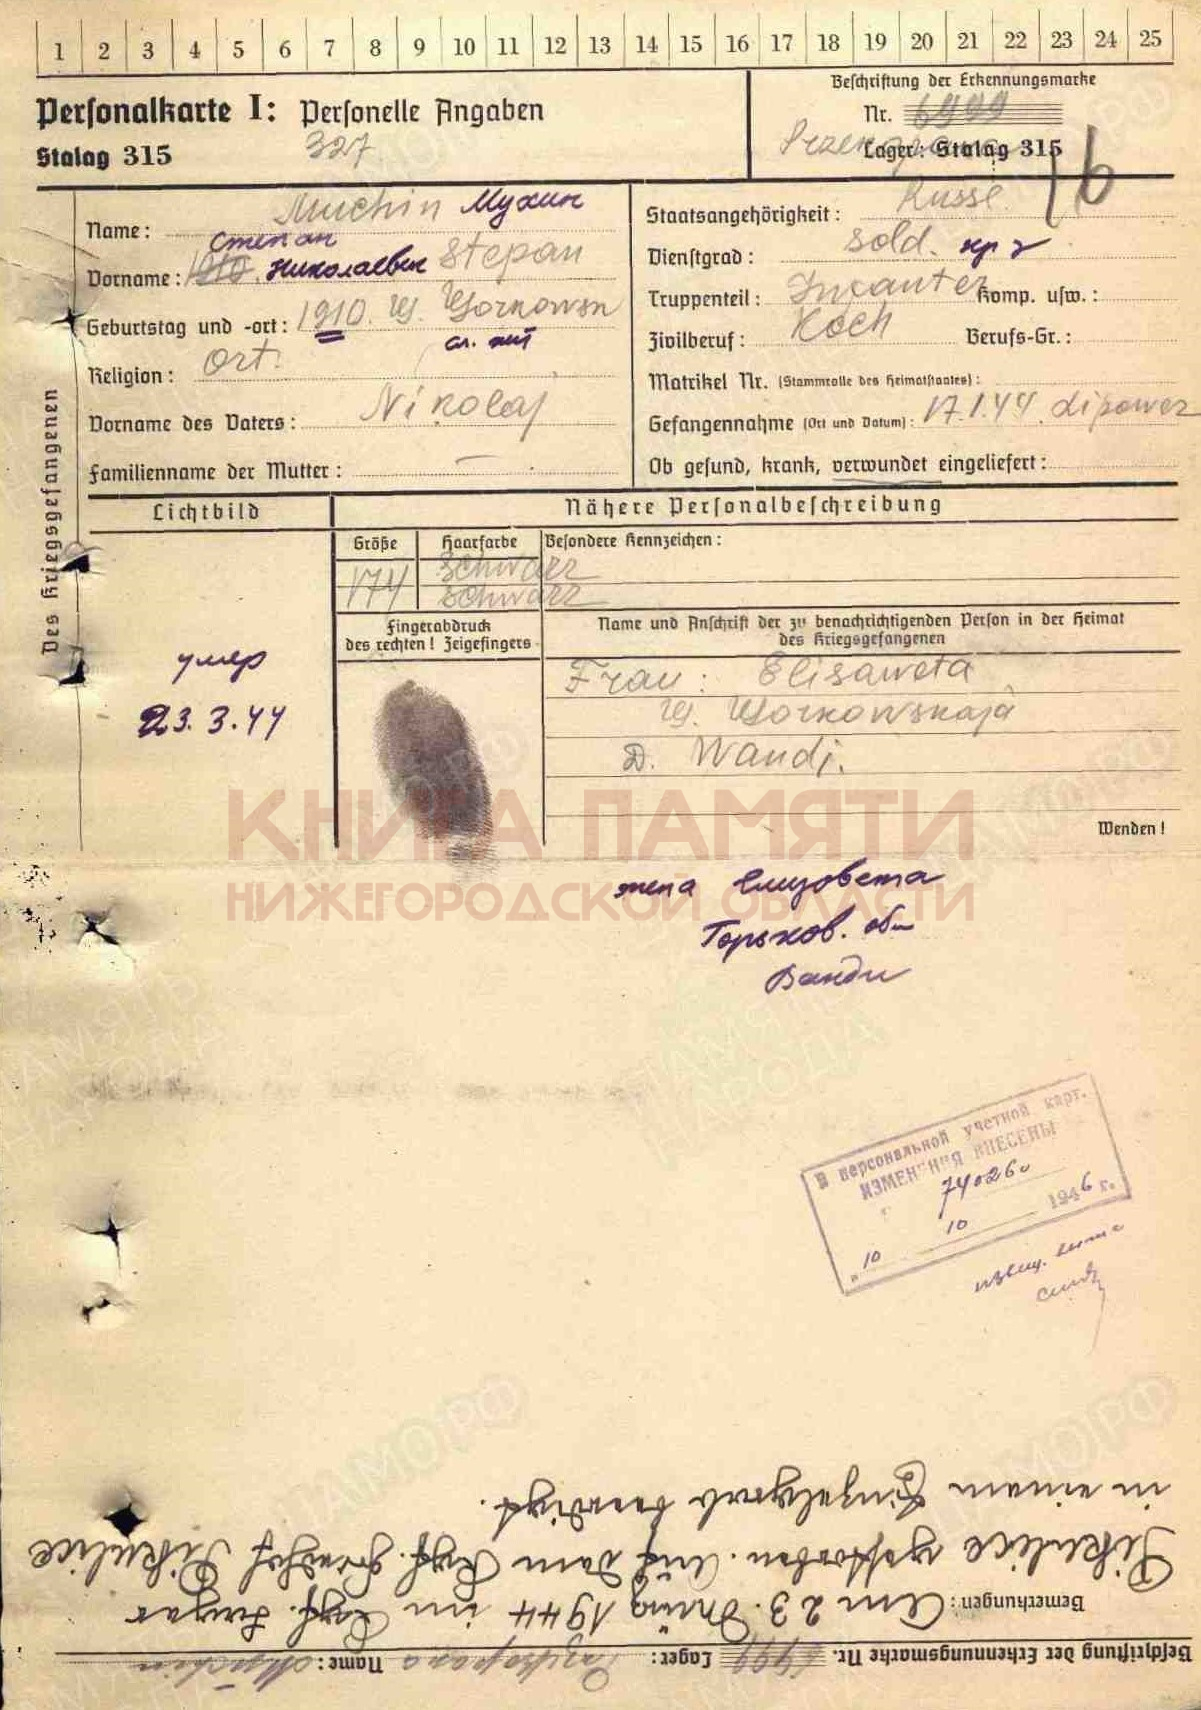 1 2 3 4 5 6 7 8 9 10 11 12 13 14 15 16 17 18 19 20 21 22 23 24 25
Personalkarte I: Personelle Angaben
327
Stalag 315
Beschriftung der Erkennungsmarke
Nr. 6999
Lager: Stalag 315
16
Des Kriegsgefangenen
Name: Muchin Мухин
Степан
Vorname: 1910. Николаевич Stepan
Geburtstag und -ort: 1910. G. Gorkowsk
Religion: Ort.
Vorname des Vaters: Nikolaj
Familienname der Mutter: —
Staatsangehörigkeit: Russe
Dienstgrad: Sold. кр-ц
Truppenteil: Infanter Komp. usw.:
Zivilberuf: Koch Berufs-Gr.:
Matrikel Nr. (Stammrolle des Heimatstaates):
Gefangennahme (Ort und Datum): 17.1.44 Lipowez
Ob gesund, krank, verwundet eingeliefert:
Lichtbild
умер
23.3.44
Nähere Personalbeschreibung
Größe Haarfarbe Besondere Kennzeichen:
174 Schwarz
Schwarz
Fingerabdruck
des rechten! Zeigefingers
Name und Anschrift der zu benachrichtigenden Person in der Heimat
des Kriegsgefangenen
Frau: Elisaweta
G. Gorkowskaja
D. Wandj.
Wenden!
КНИГА ПАМЯТИ
НИЖЕГОРОДСКОЙ ОБЛАСТИ
жена Елизовета
Горьков. обл
Ванди
В персональной учетной карт.
ИЗМЕНЕНИЯ ВНЕСЕНЫ
74026
„10 10 1946 г.
извещ.
Beschriftung der Erkennungsmarke Nr. 6999 Lager: Name: Muchin
Bemerkungen: Am 23. März 1944 im Kgf. Lager
Pikulice gestorben. Auf dem Kgf. Friedhof Pikulice
in einem Einzelgrab beerdigt.
ПАМЯТЬ
НАРОДА
ЦАМО.РФ